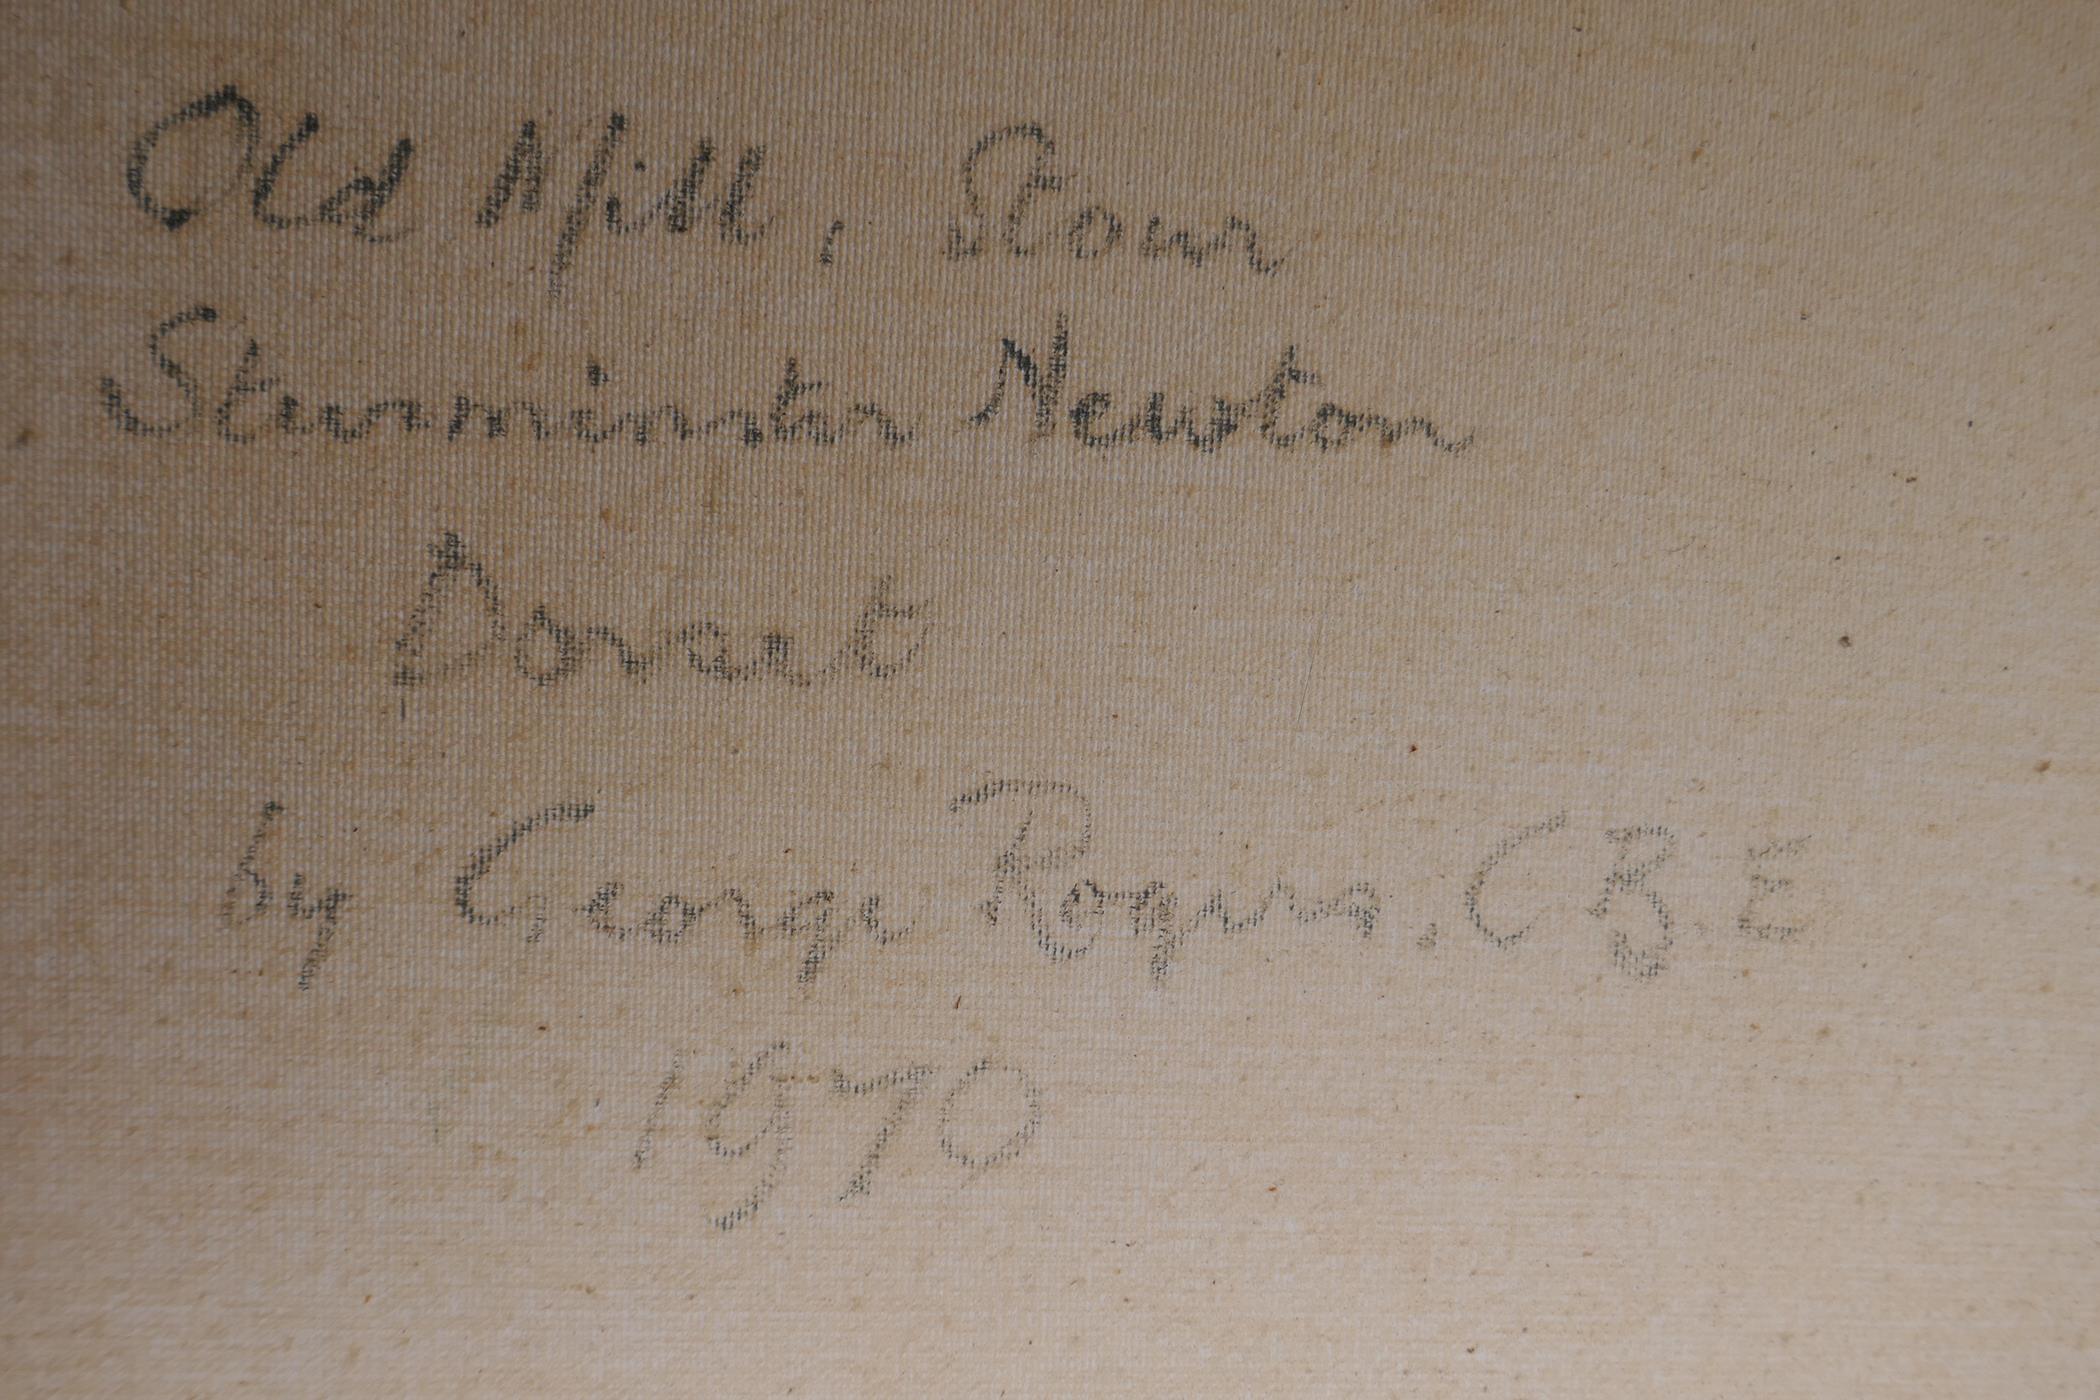 Old Mill, Stour
Sturminster Newton
Dorset
by George Rogers. C.B.E
1970